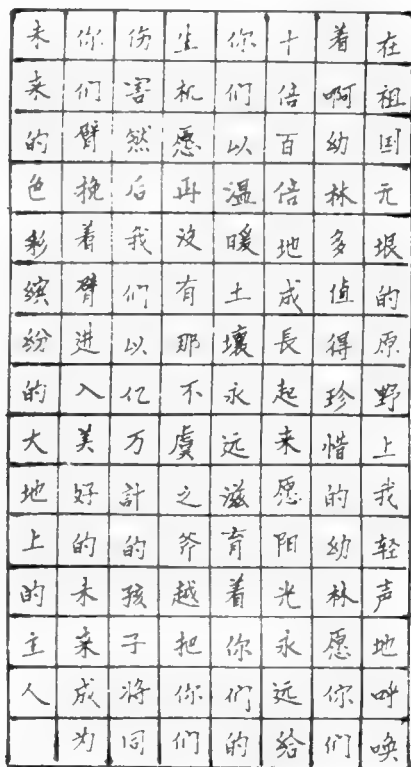 在祖国无垠的原野上我轻声地呼唤
着啊幼林多值得珍惜的幼林愿你们
十倍百倍地成長起来愿阳光永远给
你们以温暖土壤永远滋育着你们的
生机愿再没有那不虞之斧越把你们
伤害然后我们以亿万計的孩子将同
你们臂挽着臂进入美好的未来成为
未来的色彩缤纷的大地上的主人